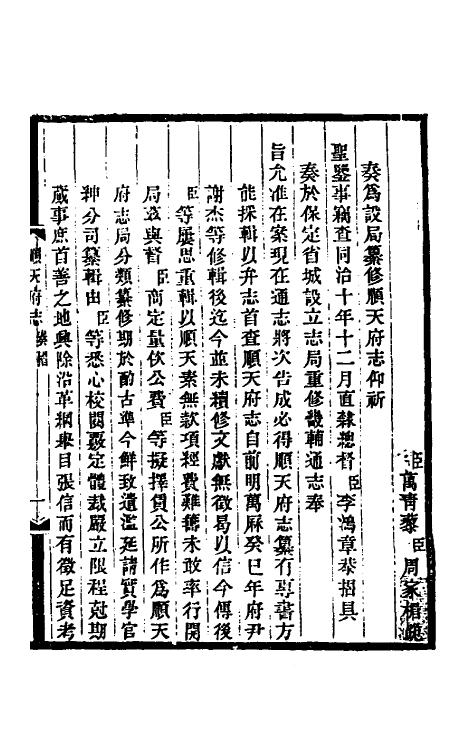 臣萬青藜臣周家楣跪
奏爲設局纂修順天府志仰祈
聖鑒事竊查同治十年十二月直隸總督臣李鴻章恭摺具
奏於保定省城設立志局重修畿輔通志奉
旨允准在案現在通志將次告成必得順天府志纂有專書方
能採輯以弁志首查順天府志自前明萬厤癸巳年府尹
謝杰等修輯後迄今並未續修文獻無徵曷以信今傳後
臣等屢思重輯以順天素無款項經費難籌未敢率行開
局茲與督臣商定量佽公費臣等擬擇貢公所作爲順天
府志局分類纂修期於酌古準今鮮致遺濫延請實學官
紳分司纂輯由臣等悉心校閱覈定體裁嚴立限程尅期
蕆事庶首善之地興除沿革綱舉目張信而有徵足資考
順天府志
奏摺
一